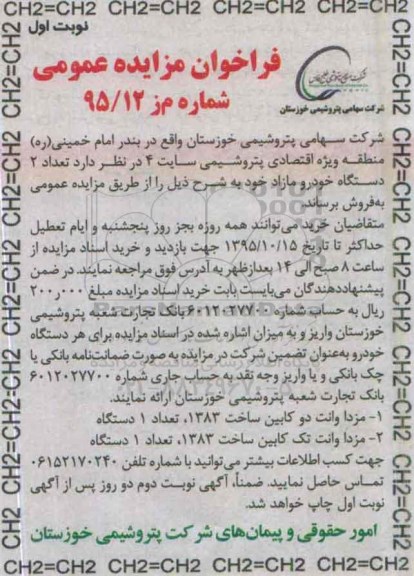 CH2=CH2 CH2=CH2 CH2=CH2 CH2=CH2 CH2=CH2
نوبت اول
فراخوان مزایده عمومی
شماره م‌ز ۹۵/۱۲
شرکت سهامی پتروشیمی خوزستان
شرکت سهامی پتروشیمی خوزستان واقع در بندر امام خمینی(ره)
منطقه ویژه اقتصادی پتروشیمی سایت ۴ در نظر دارد تعداد ۲
دستگاه خودرو مازاد خود به شرح ذیل را از طریق مزایده عمومی
به‌فروش برساند.
متقاضیان خرید می‌توانند همه روزه بجز روز پنجشنبه و ایام تعطیل
حداکثر تا تاریخ ۱۳۹۵/۱۰/۱۵ جهت بازدید و خرید اسناد مزایده از
ساعت ۸ صبح الی ۱۴ بعدازظهر به آدرس فوق مراجعه نمایند. در ضمن
پیشنهاددهندگان می‌بایست بابت خرید اسناد مزایده مبلغ ۲۰۰٫۰۰۰
ریال به حساب شماره ۶۰۱۲۰۲۷۷۰۰ بانک تجارت شعبه پتروشیمی
خوزستان واریز و به میزان اشاره شده در اسناد مزایده برای هر دستگاه
خودرو به‌عنوان تضمین شرکت در مزایده به صورت ضمانت‌نامه بانکی یا
چک بانکی و یا واریز وجه نقد به حساب جاری شماره ۶۰۱۲۰۲۷۷۰۰
بانک تجارت شعبه پتروشیمی خوزستان ارائه نمایند.
۱- مزدا وانت دو کابین ساخت ۱۳۸۳، تعداد ۱ دستگاه
۲- مزدا وانت تک کابین ساخت ۱۳۸۳، تعداد ۱ دستگاه
جهت کسب اطلاعات بیشتر می‌توانید با شماره تلفن ۰۶۱۵۲۱۷۰۲۴۰
تماس حاصل نمایید. ضمناً، آگهی نوبت دوم دو روز پس از آگهی
نوبت اول چاپ خواهد شد.
امور حقوقی و پیمان‌های شرکت پتروشیمی خوزستان
CH2=CH2 CH2=CH2 CH2=CH2 CH2=CH2 CH2=CH2